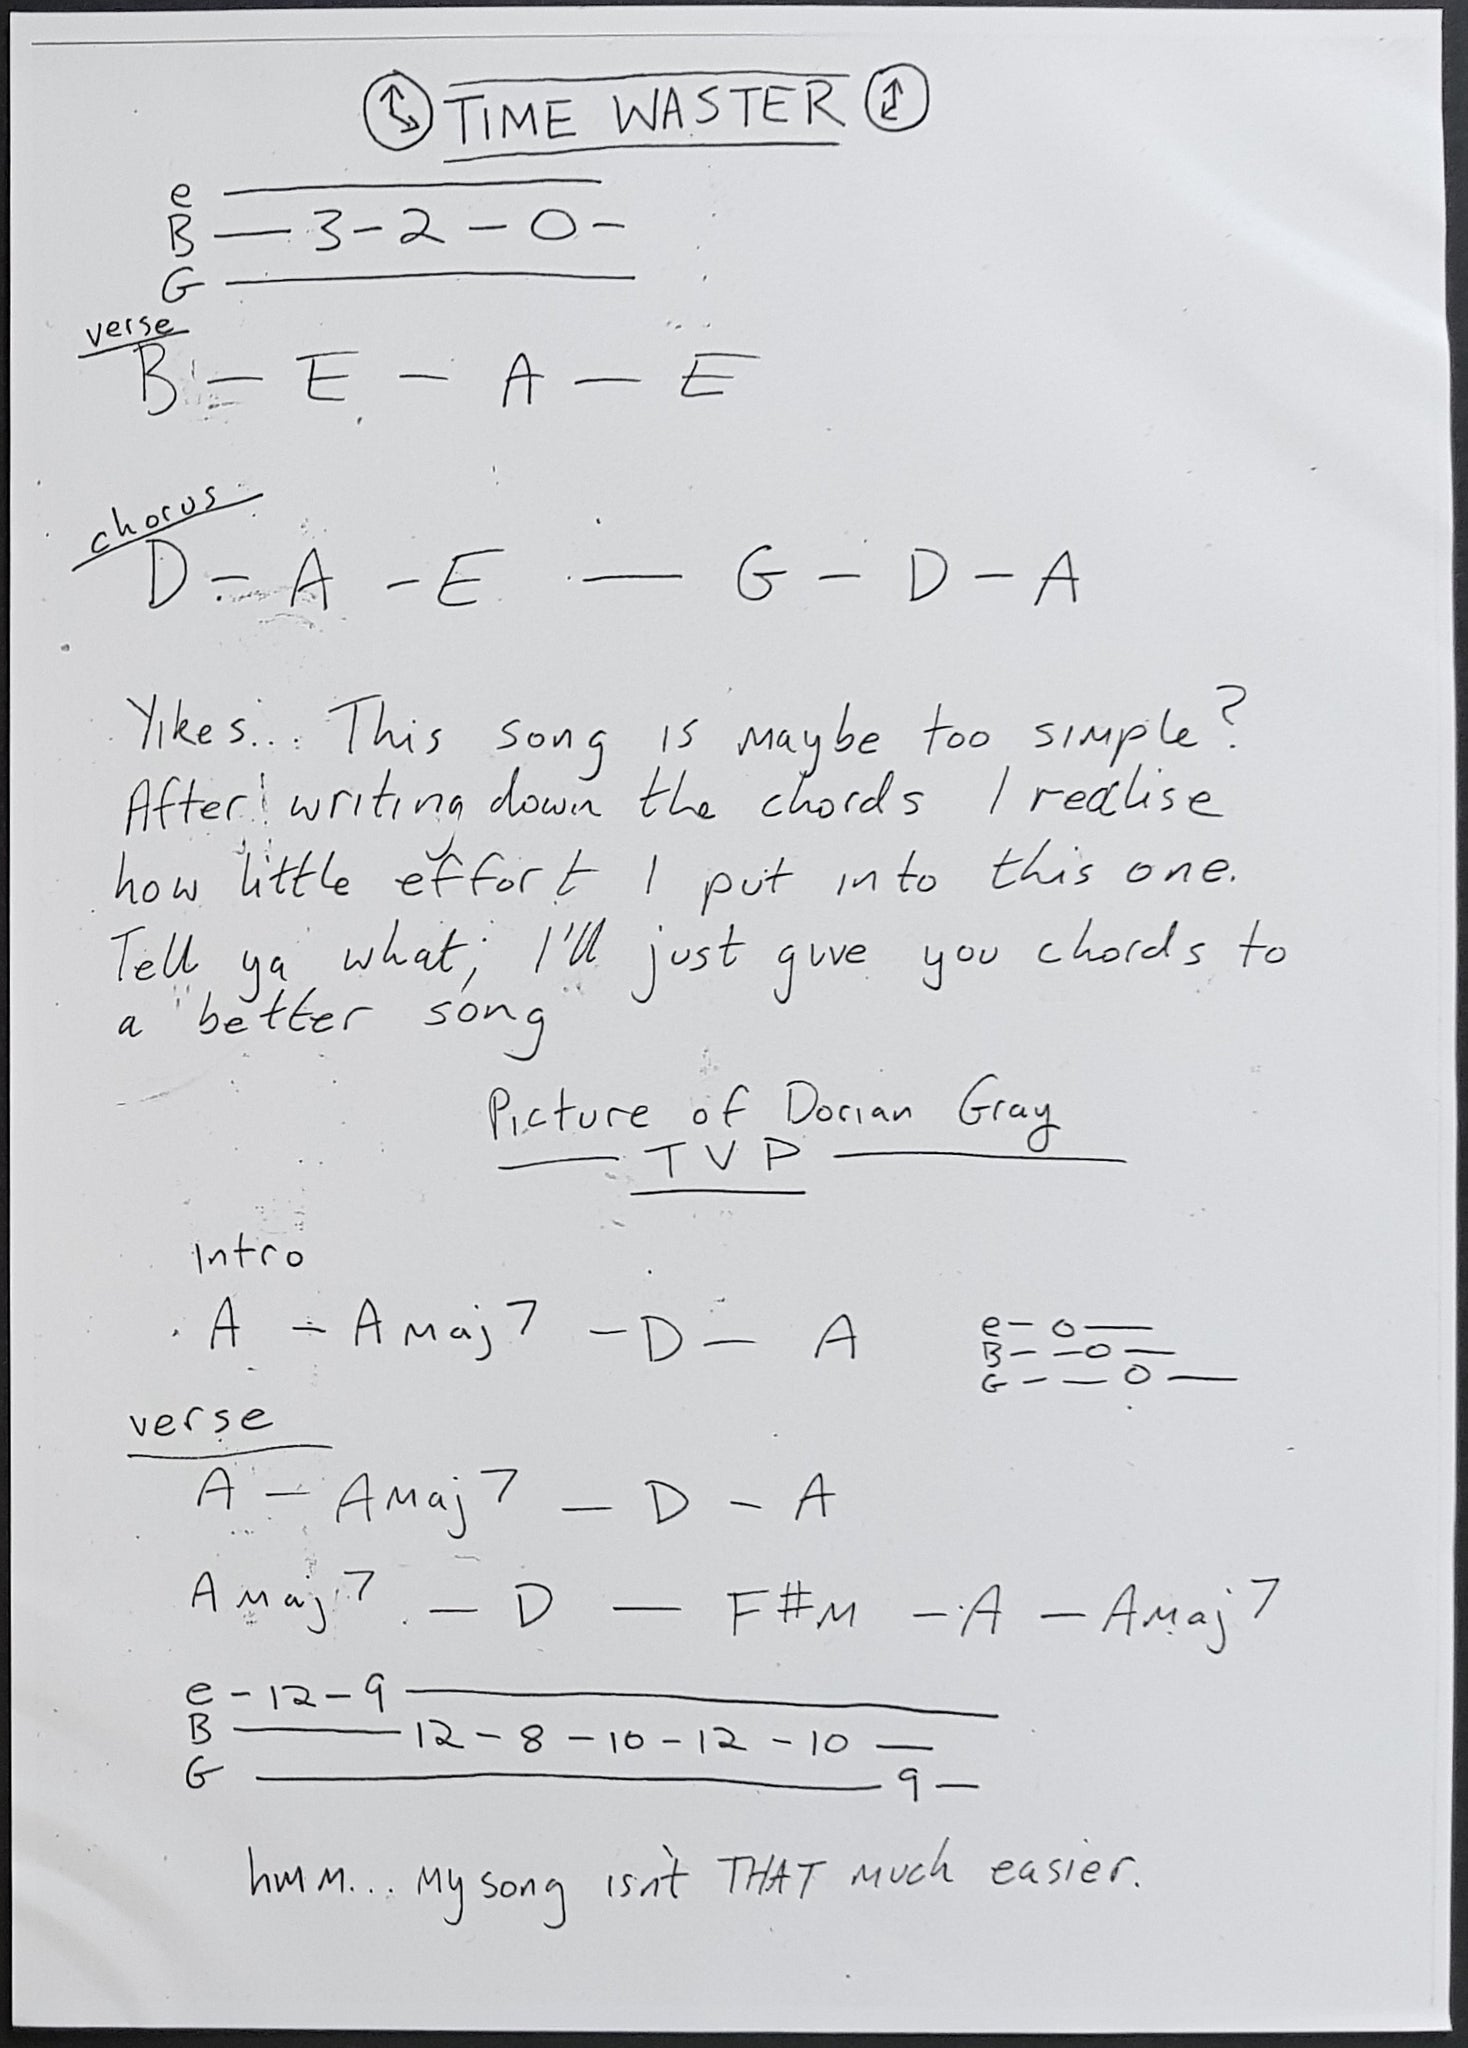 TIME WASTER
e ————
B — 3 - 2 - 0 -
G ————
verse
B - E - A - E
chorus
D - A - E — G - D - A
Yikes... This song is maybe too simple?
After writing down the chords I realise
how little effort I put into this one.
Tell ya what, I'll just give you chords to
a better song
Picture of Dorian Gray
TVP
Intro
A - Amaj7 - D - A
e - 0 ——
B - - 0 —
G - — 0 —
verse
A - Amaj7 - D - A
Amaj7 - D - F#m - A - Amaj7
e - 12 - 9 ————
B ——— 12 - 8 - 10 - 12 - 10 —
G ———————— 9 —
hmm... My song isn't THAT much easier.